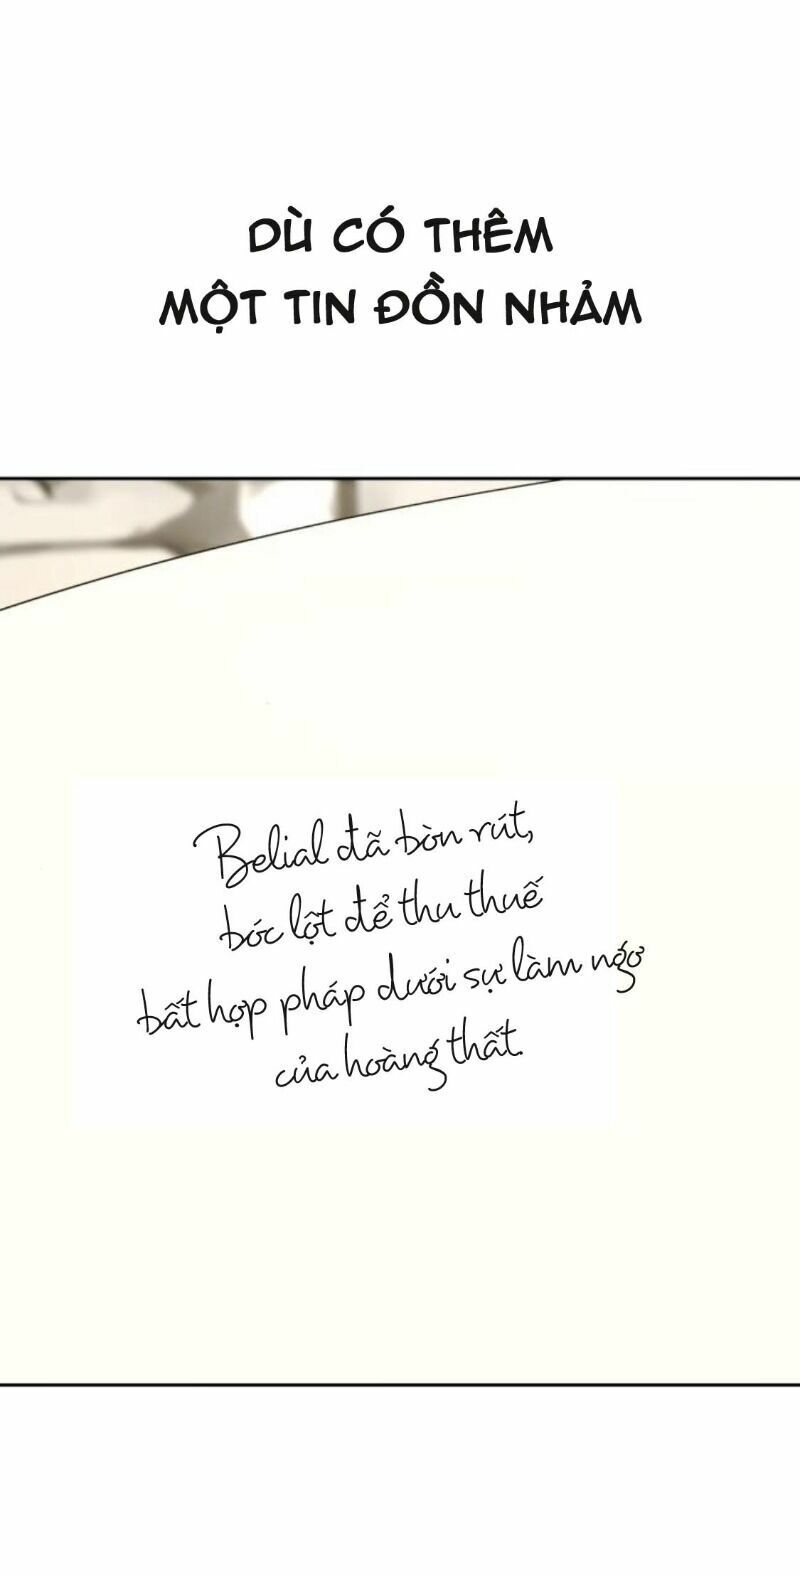 DÙ CÓ THÊM
MỘT TIN ĐỒN NHẢM
Belial đã bòn rút,
bóc lột để thu thuế
bất hợp pháp dưới sự làm ngơ
của hoàng thất.